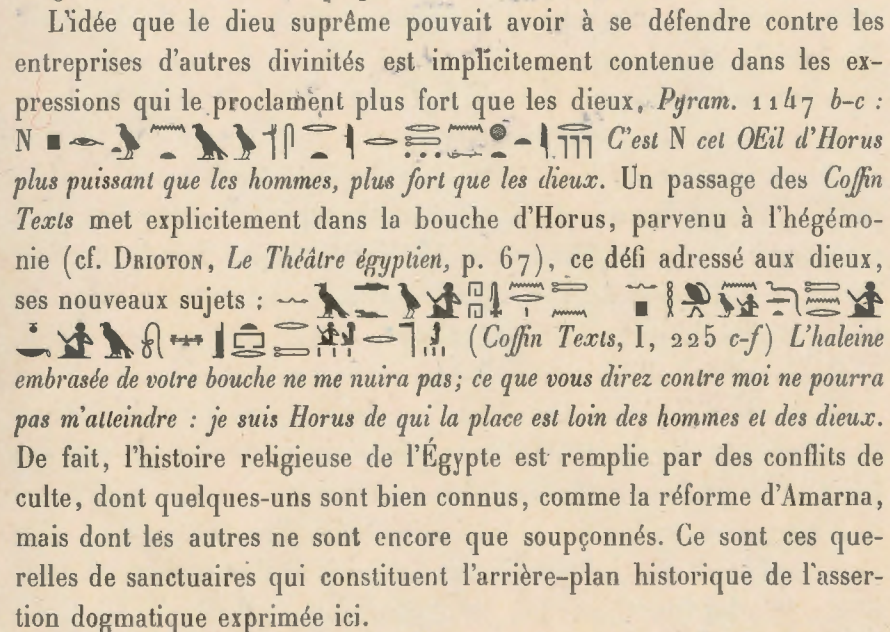 L'idée que le dieu suprême pouvait avoir à se défendre contre les
entreprises d'autres divinités est implicitement contenue dans les ex-
pressions qui le proclament plus fort que les dieux, Pyram. 1147 b-c :
N C'est N cet OEil d'Horus
plus puissant que les hommes, plus fort que les dieux. Un passage des Coffin
Texts met explicitement dans la bouche d'Horus, parvenu à l'hégémo-
nie (cf. DRIOTON, Le Théâtre égyptien, p. 67), ce défi adressé aux dieux,
ses nouveaux sujets :
(Coffin Texts, I, 225 c-f) L'haleine
embrasée de votre bouche ne me nuira pas; ce que vous direz contre moi ne pourra
pas m'atteindre : je suis Horus de qui la place est loin des hommes et des dieux.
De fait, l'histoire religieuse de l'Égypte est remplie par des conflits de
culte, dont quelques-uns sont bien connus, comme la réforme d'Amarna,
mais dont les autres ne sont encore que soupçonnés. Ce sont ces que-
relles de sanctuaires qui constituent l'arrière-plan historique de l'asser-
tion dogmatique exprimée ici.